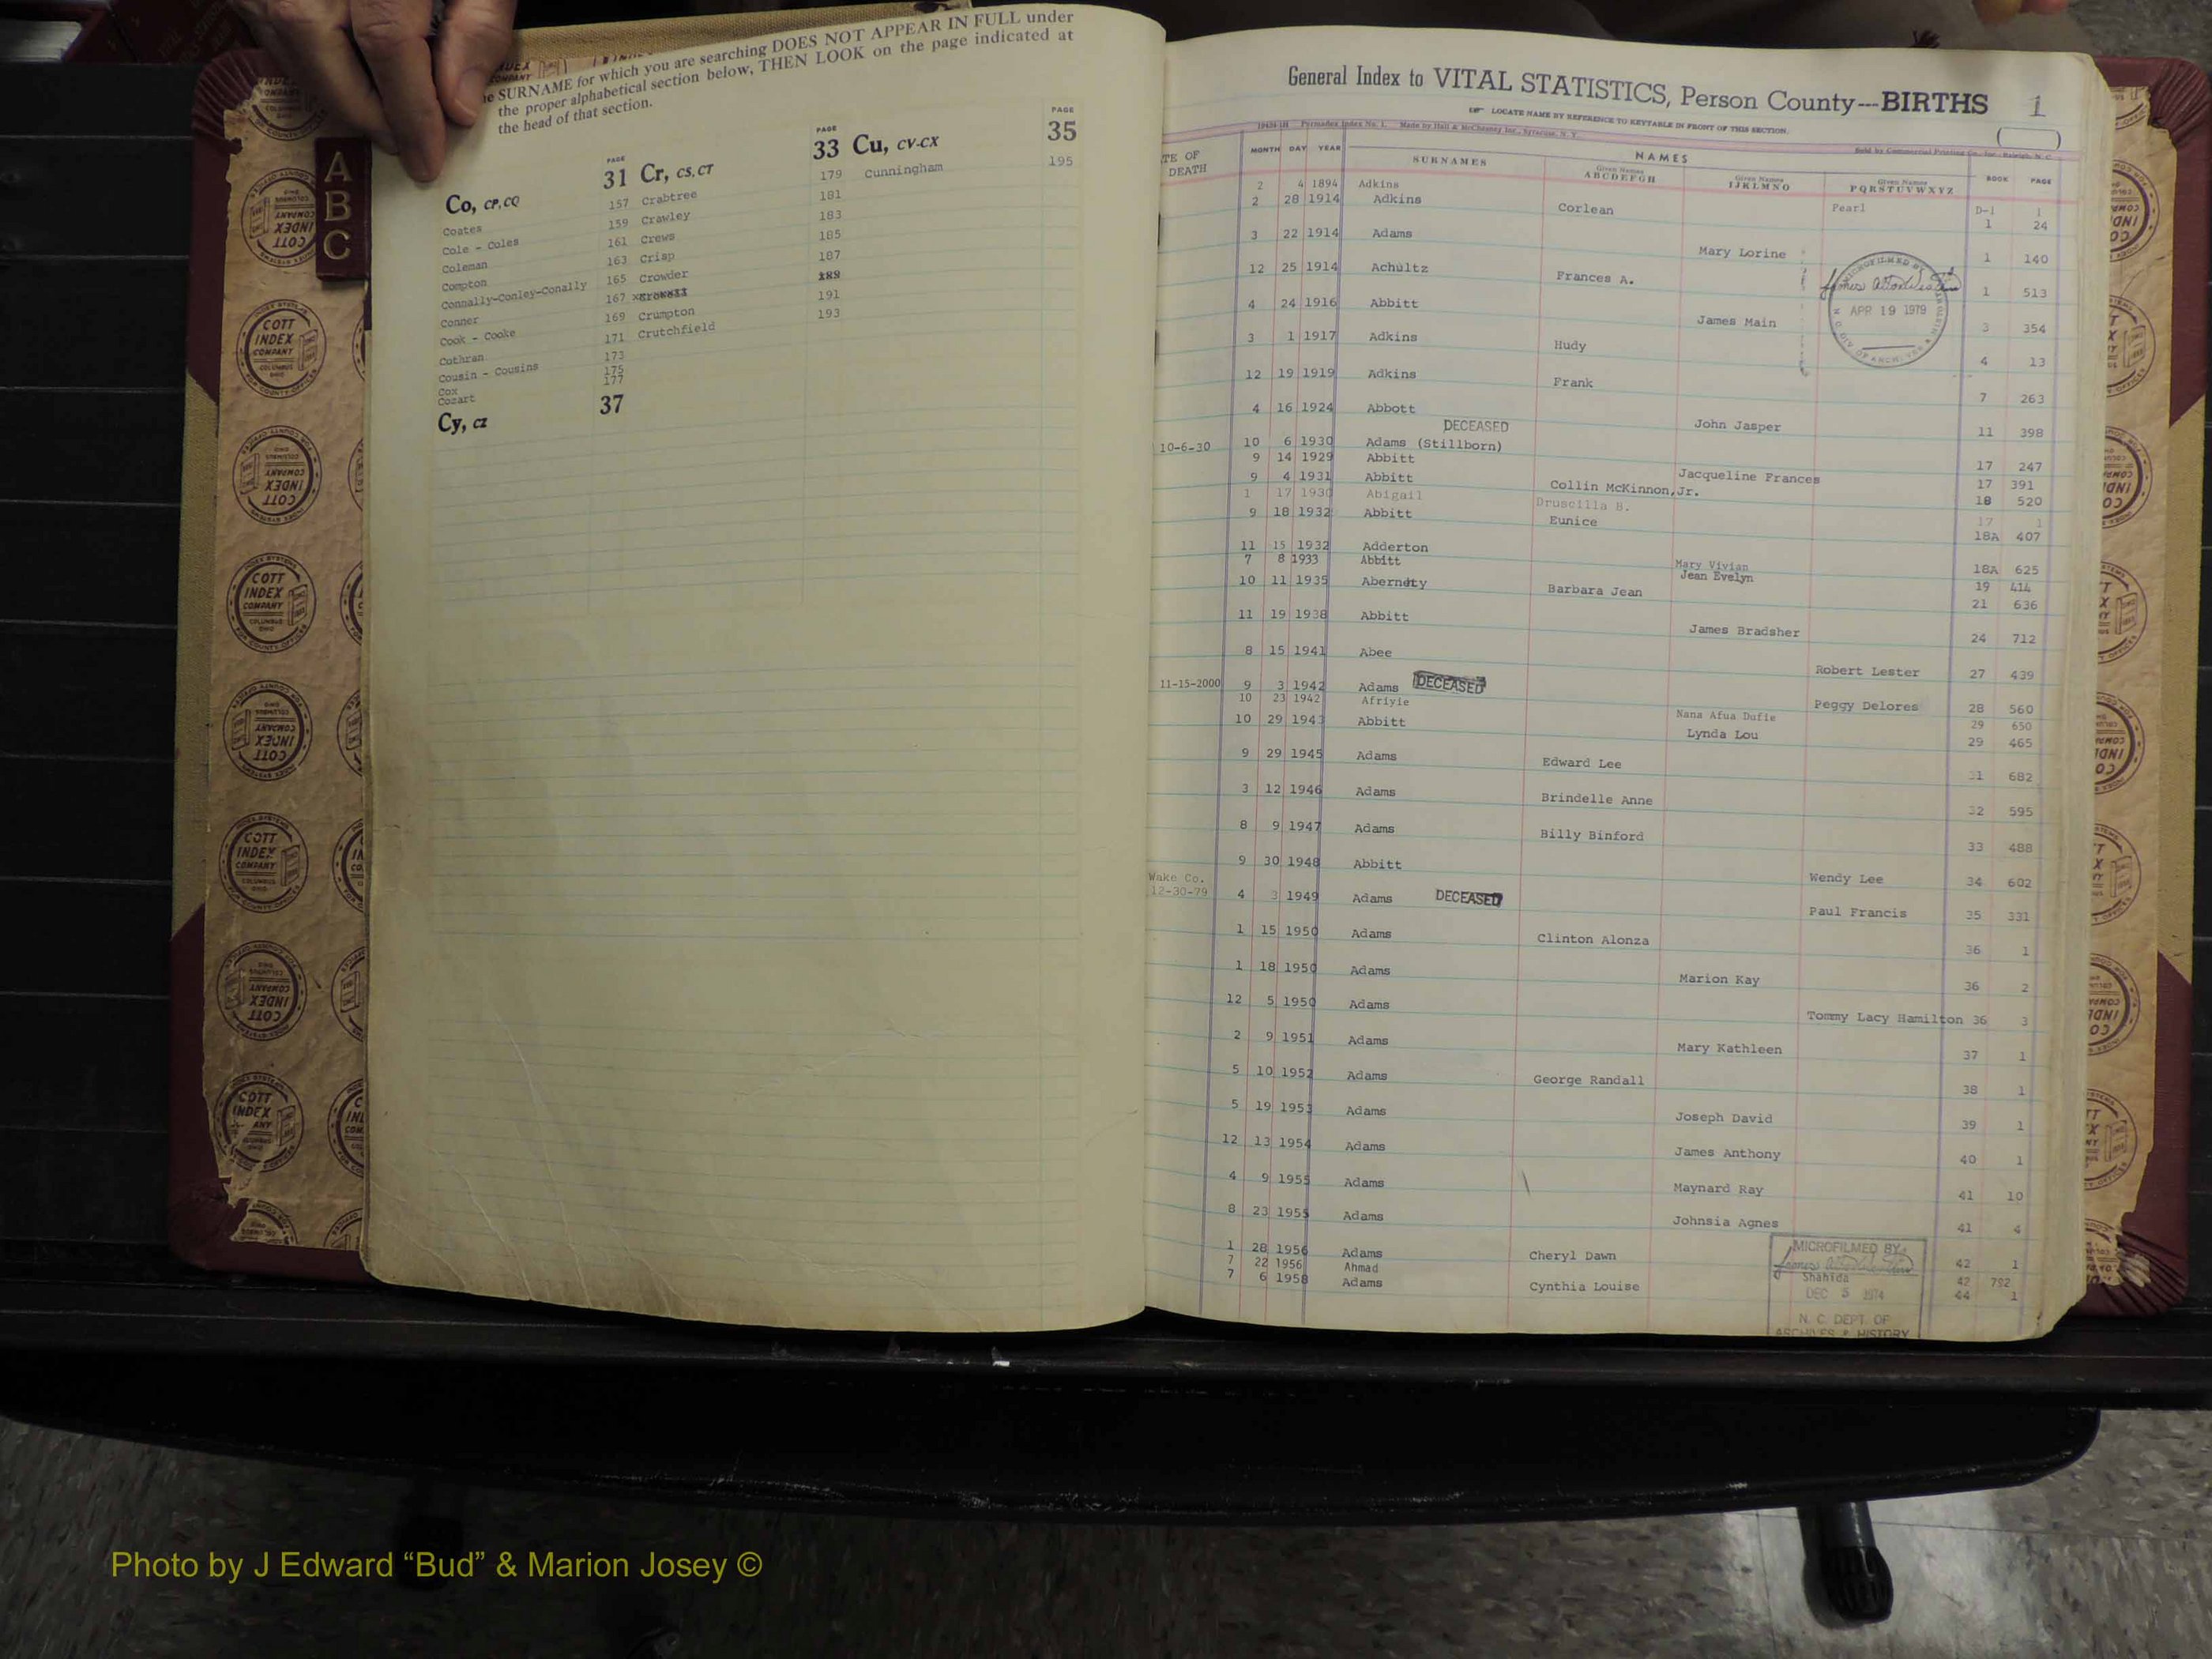 SURNAME for which you are searching DOES NOT APPEAR IN FULL under
the proper alphabetical section below, THEN LOOK on the page indicated at
the head of that section.
PAGE PAGE PAGE
Co, CP, CQ 31 Cr, CS, CT 33 Cu, CV-CX 35
Coates 157 Crabtree 179 Cunningham 195
Cole - Coles 159 Crawley 181
Coleman 161 Crews 183
Compton 163 Crisp 185
Connally-Conley-Conally 165 Crowder 187
Conner 167 189
Cook - Cooke 169 Crumpton 191
Cothran 171 Crutchfield 193
Cousin - Cousins 173
Cox 175
Cozart 177
Cy, CZ 37
A
B
C
General Index to VITAL STATISTICS, Person County---BIRTHS 1
LOCATE NAME BY REFERENCE TO KEYTABLE IN FRONT OF THIS SECTION.
Made by Hall & McChesney Inc., Syracuse, N. Y.
Sold by Commercial Printing Co., Inc., Raleigh, N. C.
DEATH MONTH DAY YEAR SURNAMES NAMES BOOK PAGE
Given Names ABCDEFGH Given Names IJKLMNO Given Names PQRSTUVWXYZ
2 4 1894 Adkins Pearl D-1 1
2 28 1914 Adkins Corlean 1 24
3 22 1914 Adams Mary Lorine 1 140
12 25 1914 Achultz Frances A. 1 513
4 24 1916 Abbitt James Main 3 354
3 1 1917 Adkins Hudy 4 13
12 19 1919 Adkins Frank 7 263
4 16 1924 Abbott John Jasper 11 398
DECEASED
10-6-30 10 6 1930 Adams (Stillborn) 17 247
9 14 1929 Abbitt Jacqueline Frances 17 391
9 4 1931 Abbitt Collin McKinnon,Jr. 18 520
1 17 1930 Abigail Druscilla B. 17 1
9 18 1932 Abbitt Eunice 18A 407
11 15 1932 Adderton Mary Vivian 18A 625
7 8 1933 Abbitt Jean Evelyn 19 414
10 11 1935 Barbara Jean 21 636
11 19 1938 Abbitt James Bradsher 24 712
8 15 1941 Abee Robert Lester 27 439
11-15-2000 9 3 1942 Adams DECEASED Peggy Delores 28 560
10 23 1942 Afriyie Nana Afua Dufie 29 650
10 29 1943 Abbitt Lynda Lou 29 465
9 29 1945 Adams Edward Lee 31 682
3 12 1946 Adams Brindelle Anne 32 595
8 9 1947 Adams Billy Binford 33 488
9 30 1948 Abbitt Wendy Lee 34 602
Wake Co.
12-30-79 4 3 1949 Adams DECEASED Paul Francis 35 331
1 15 1950 Adams Clinton Alonza 36 1
1 18 1950 Adams Marion Kay 36 2
12 5 1950 Adams Tommy Lacy Hamilton 36 3
2 9 1951 Adams Mary Kathleen 37 1
5 10 1952 Adams George Randall 38 1
5 19 1953 Adams Joseph David 39 1
12 13 1954 Adams James Anthony 40 1
4 9 1955 Adams Maynard Ray 41 10
8 23 1955 Adams Johnsia Agnes 41 4
1 28 1956 Adams Cheryl Dawn 42 1
7 22 1956 Ahmad Shahida 42 792
7 6 1958 Adams Cynthia Louise 44 1
MICROFILMED BY
APR 19 1979
MICROFILMED BY
DEC 5 1974
N. C. DEPT. OF
ARCHIVES & HISTORY
COTT
INDEX
COMPANY
COLUMBUS
OHIO
Photo by J Edward “Bud” & Marion Josey ©